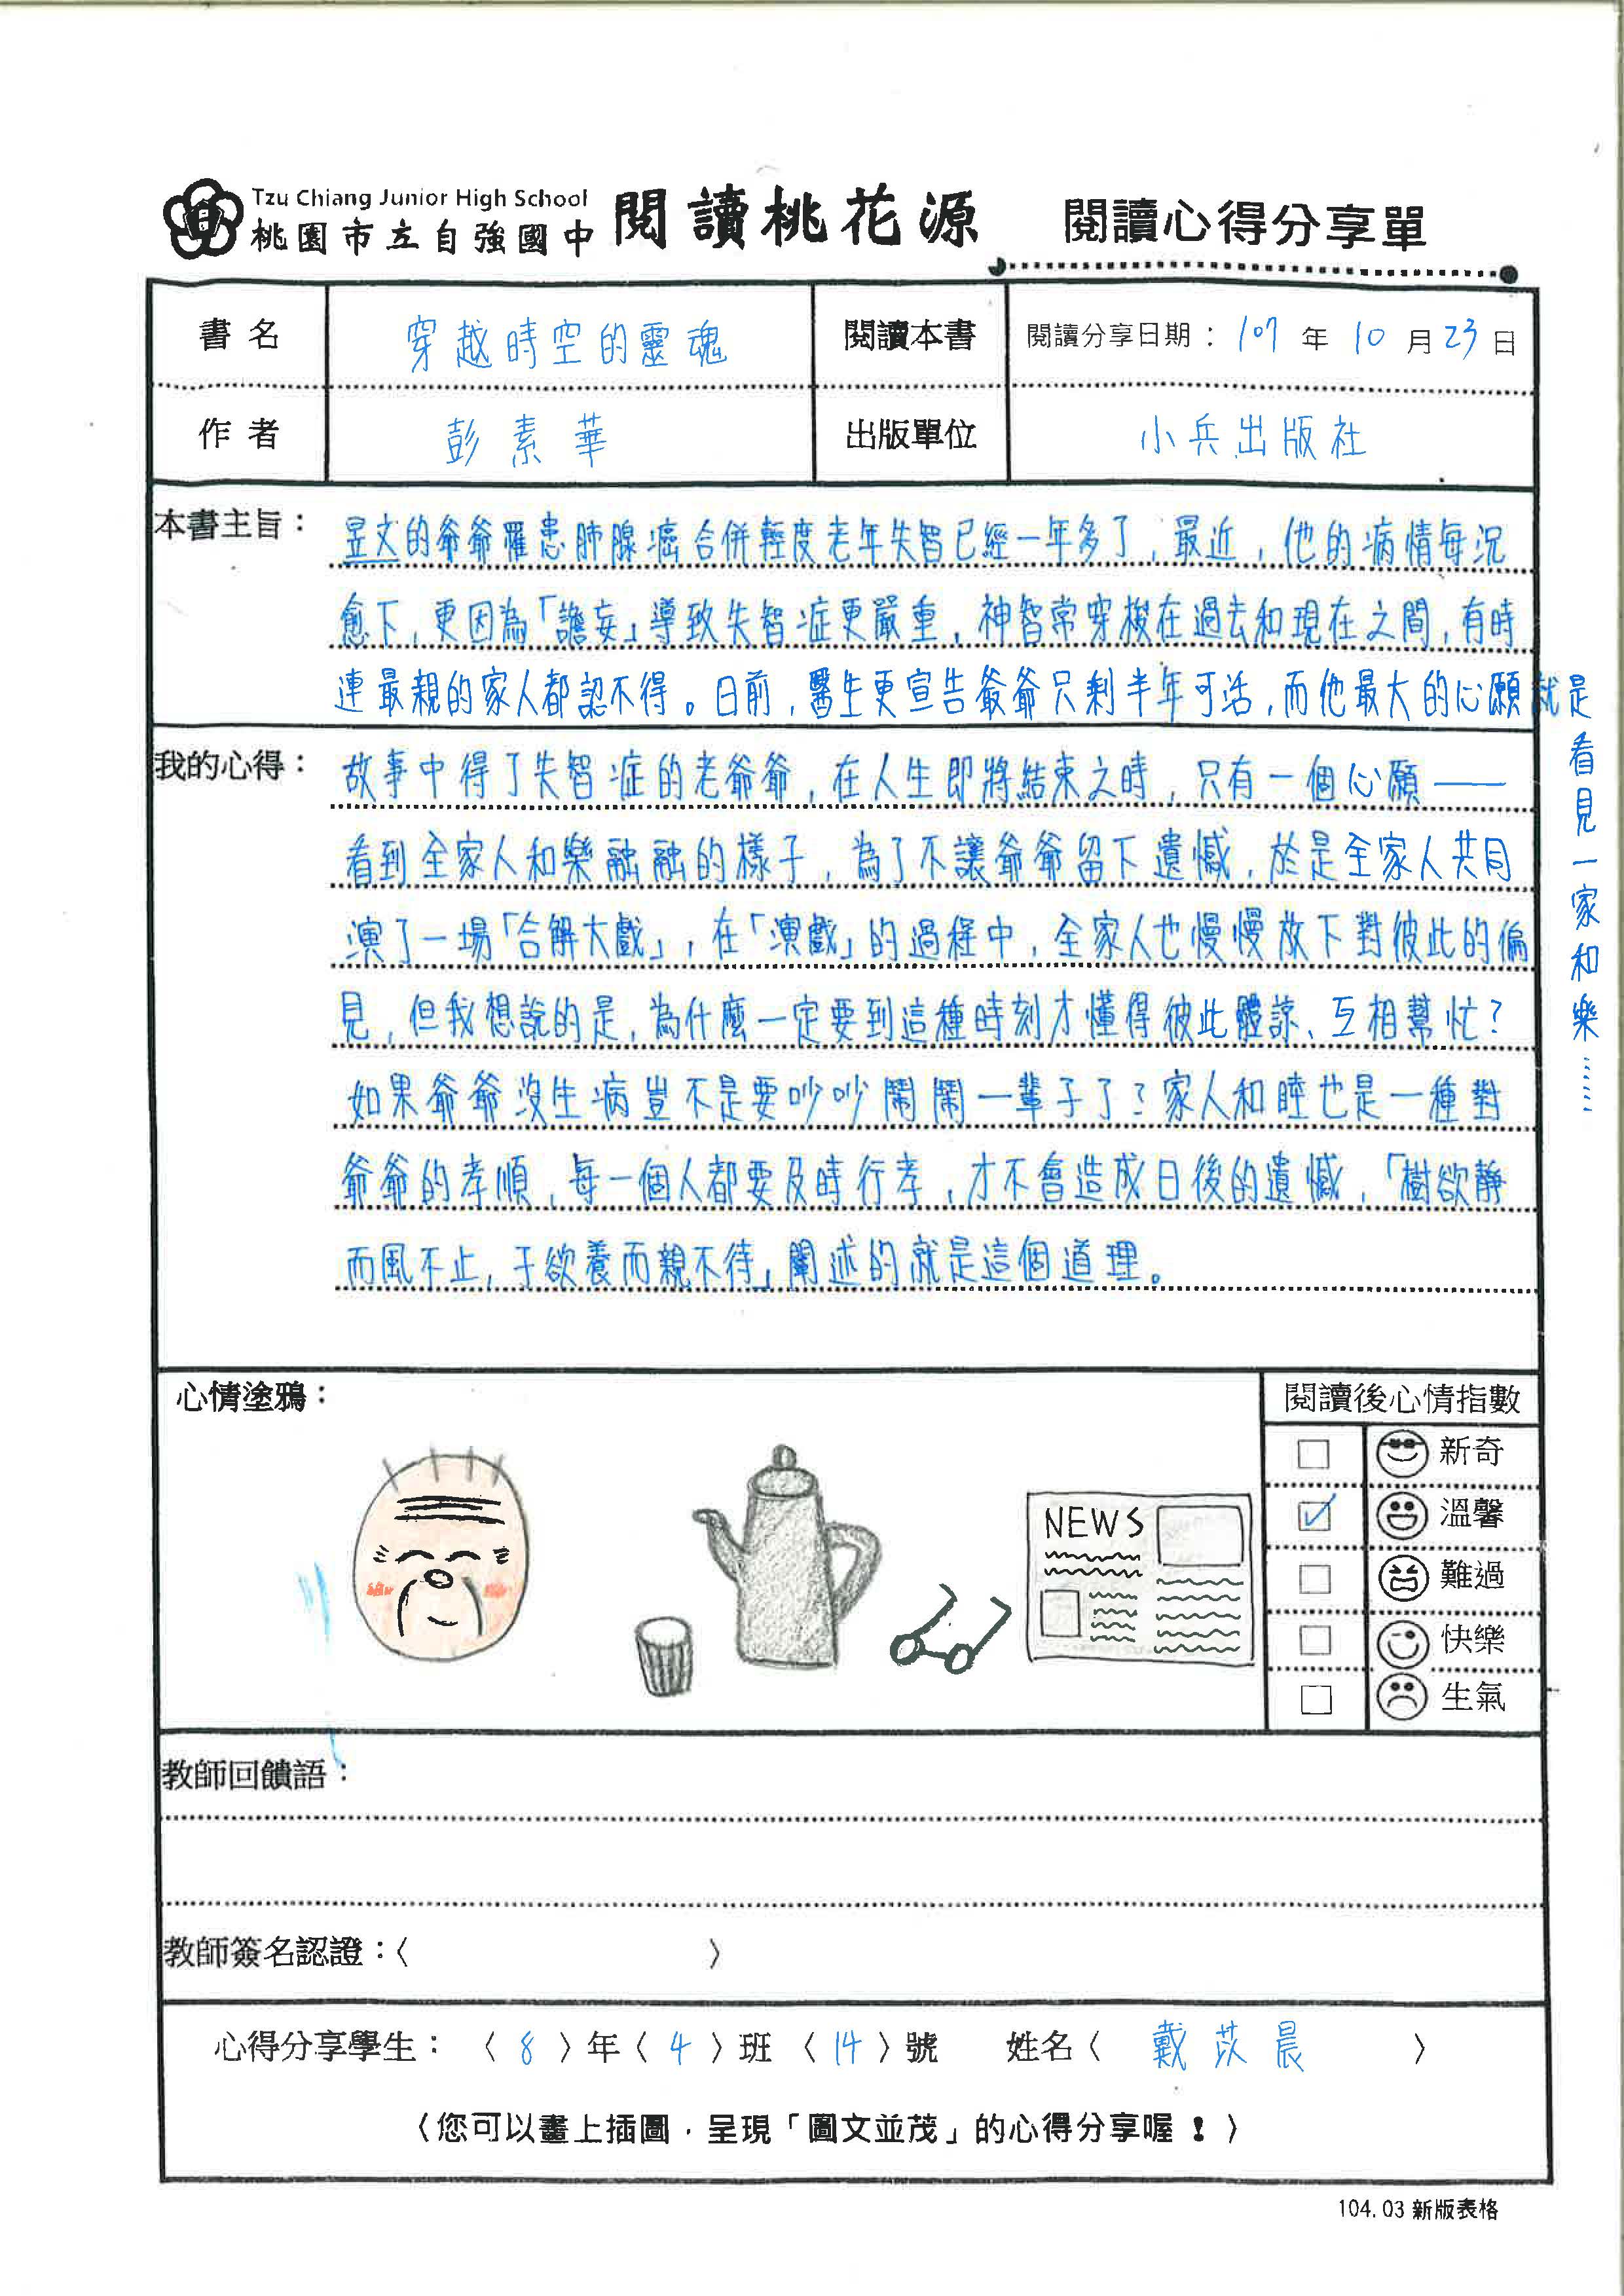 Tzu Chiang Junior High School
桃園市立自強國中 閱讀桃花源 閱讀心得分享單
書名 穿越時空的靈魂 閱讀本書 閱讀分享日期：107年10月23日
作者 彭素華 出版單位 小兵出版社
本書主旨：昱文的爺爺罹患肺腺癌合併輕度老年失智已經一年多了，最近，他的病情每況
愈下，更因為「譫妄」導致失智症更嚴重，神智常穿梭在過去和現在之間，有時
連最親的家人都認不得。日前，醫生更宣告爺爺只剩半年可活，而他最大的心願就是
看見一家和樂……
我的心得：故事中得了失智症的老爺爺，在人生即將結束之時，只有一個心願——
看到全家人和樂融融的樣子，為了不讓爺爺留下遺憾，於是全家人共同
演了一場「合解大戲」，在「演戲」的過程中，全家人也慢慢放下對彼此的偏
見，但我想說的是，為什麼一定要到這種時刻才懂得彼此體諒、互相幫忙？
如果爺爺沒生病豈不是要吵吵鬧鬧一輩子了？家人和睦也是一種對
爺爺的孝順，每一個人都要及時行孝，才不會造成日後的遺憾，「樹欲靜
而風不止，子欲養而親不待」闡述的就是這個道理。
心情塗鴉：
NEWS
閱讀後心情指數
新奇
溫馨
難過
快樂
生氣
教師回饋語：
教師簽名認證：〈 〉
心得分享學生：〈8〉年〈4〉班〈14〉號 姓名〈戴苡晨〉
〈您可以畫上插圖，呈現「圖文並茂」的心得分享喔！〉
104.03 新版表格